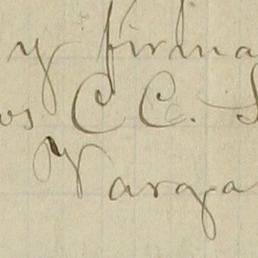 y firma
os C C. S
Varga